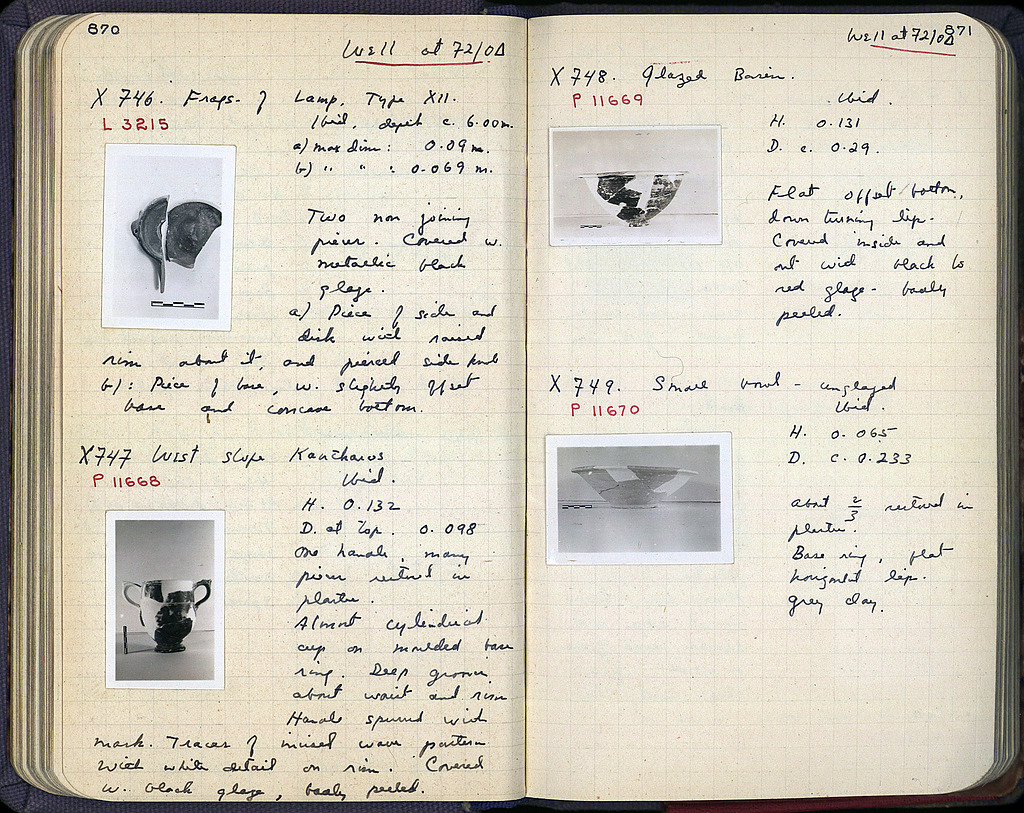 870
Well at 72/ΟΔ
X 746. Frags. of Lamp, Type XII.
L 3215
Ibid, depth c. 6.00m.
a) max dim: 0.09 m.
b) " " : 0.069 m.
Two non joining
pieces. Covered w.
metallic black
glaze.
a) Piece of side and
disk with raised
rim about it, and pierced side knob
b): Piece of base, w. slightly offset
base and concave bottom.
X747 West slope Kantharos
P 11668
Ibid.
H. 0.132
D. at Top. 0.098
One handle, many
pieces restored in
plaster.
Almost cylindrical
cup on moulded base
ring. Deep groove
about waist and rim
Handle spurred with
mask. Traces of incised wave pattern
with white detail on rim. Covered
w. black glaze, badly peeled.
871
Well at 72/ΟΔ
X 748. Glazed Basin.
P 11669
Ibid.
H. 0.131
D. c. 0.29.
Flat offset bottom,
down turning lip.
Covered inside and
out with black to
red glaze - badly
peeled.
X 749. Small bowl - unglazed
P 11670
Ibid.
H. 0.065
D. c. 0.233
About 2/3 restored in
plaster.
Base ring, flat
horizontal lip.
Grey clay.